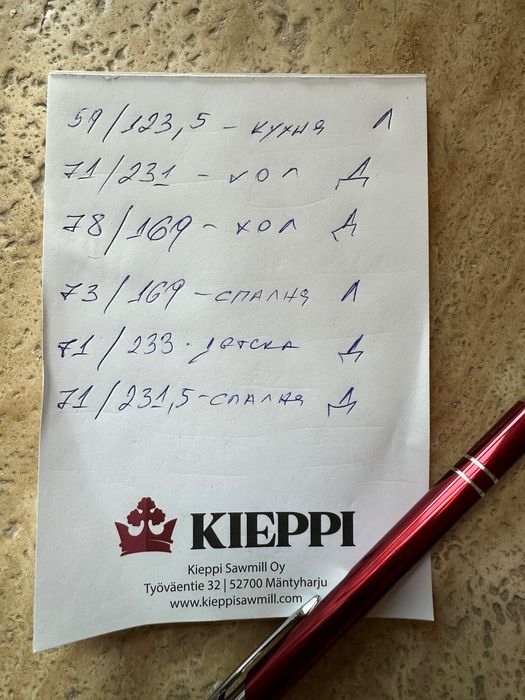 59/123,5 - кухня Л
71/231 - хол Д
78/169 - хол Д
73/169 - спалня Л
71/233 - детска Д
71/231,5 - спалня Д
KIEPPI
Kieppi Sawmill Oy
Työväentie 32 | 52700 Mäntyharju
www.kieppisawmill.com